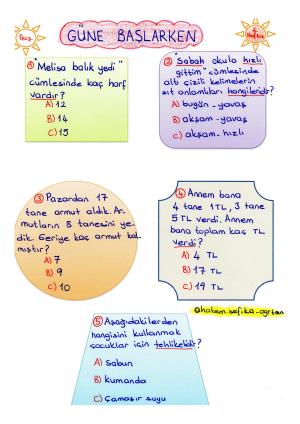 GÜNE BAŞLARKEN
① "Melisa balık yedi"
cümlesinde kaç harf
vardır?
A) 12
B) 14
C) 15
② "Sabah okula hızlı
gittim" cümlesinde
altı çizili kelimelerin
zıt anlamları hangileridir?
A) bugün - yavaş
B) akşam - yavaş
C) akşam - hızlı
③ Pazardan 17
tane armut aldık. Ar-
mutların 8 tanesini ye-
dik. Geriye kaç armut kal-
mıştır?
A) 7
B) 9
C) 10
④ Annem bana
4 tane 1TL, 3 tane
5TL verdi. Annem
bana toplam kaç TL
verdi?
A) 4 TL
B) 17 TL
C) 19 TL
@hatem.sefika_ogrtmn
⑤ Aşağıdakilerden
hangisini kullanmak
çocuklar için tehlikelidir?
A) sabun
B) kumanda
C) çamaşır suyu